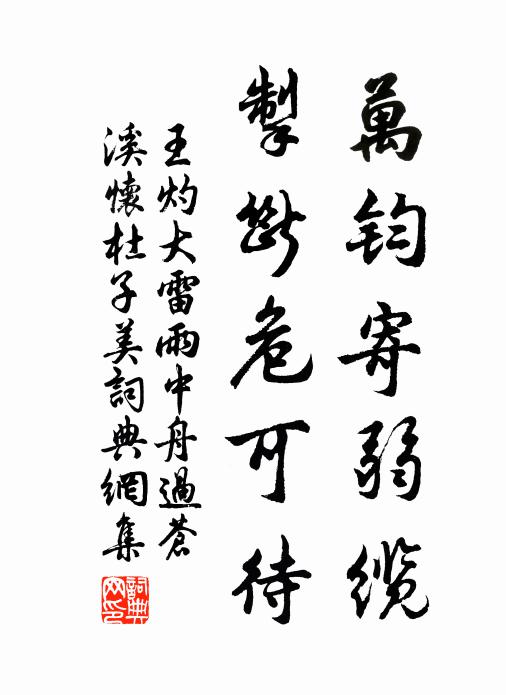 萬鈞寄弱纜
掣斷危可待
王灼大雷雨中舟過蒼
溪懷杜子美詞典網集
詞典网印